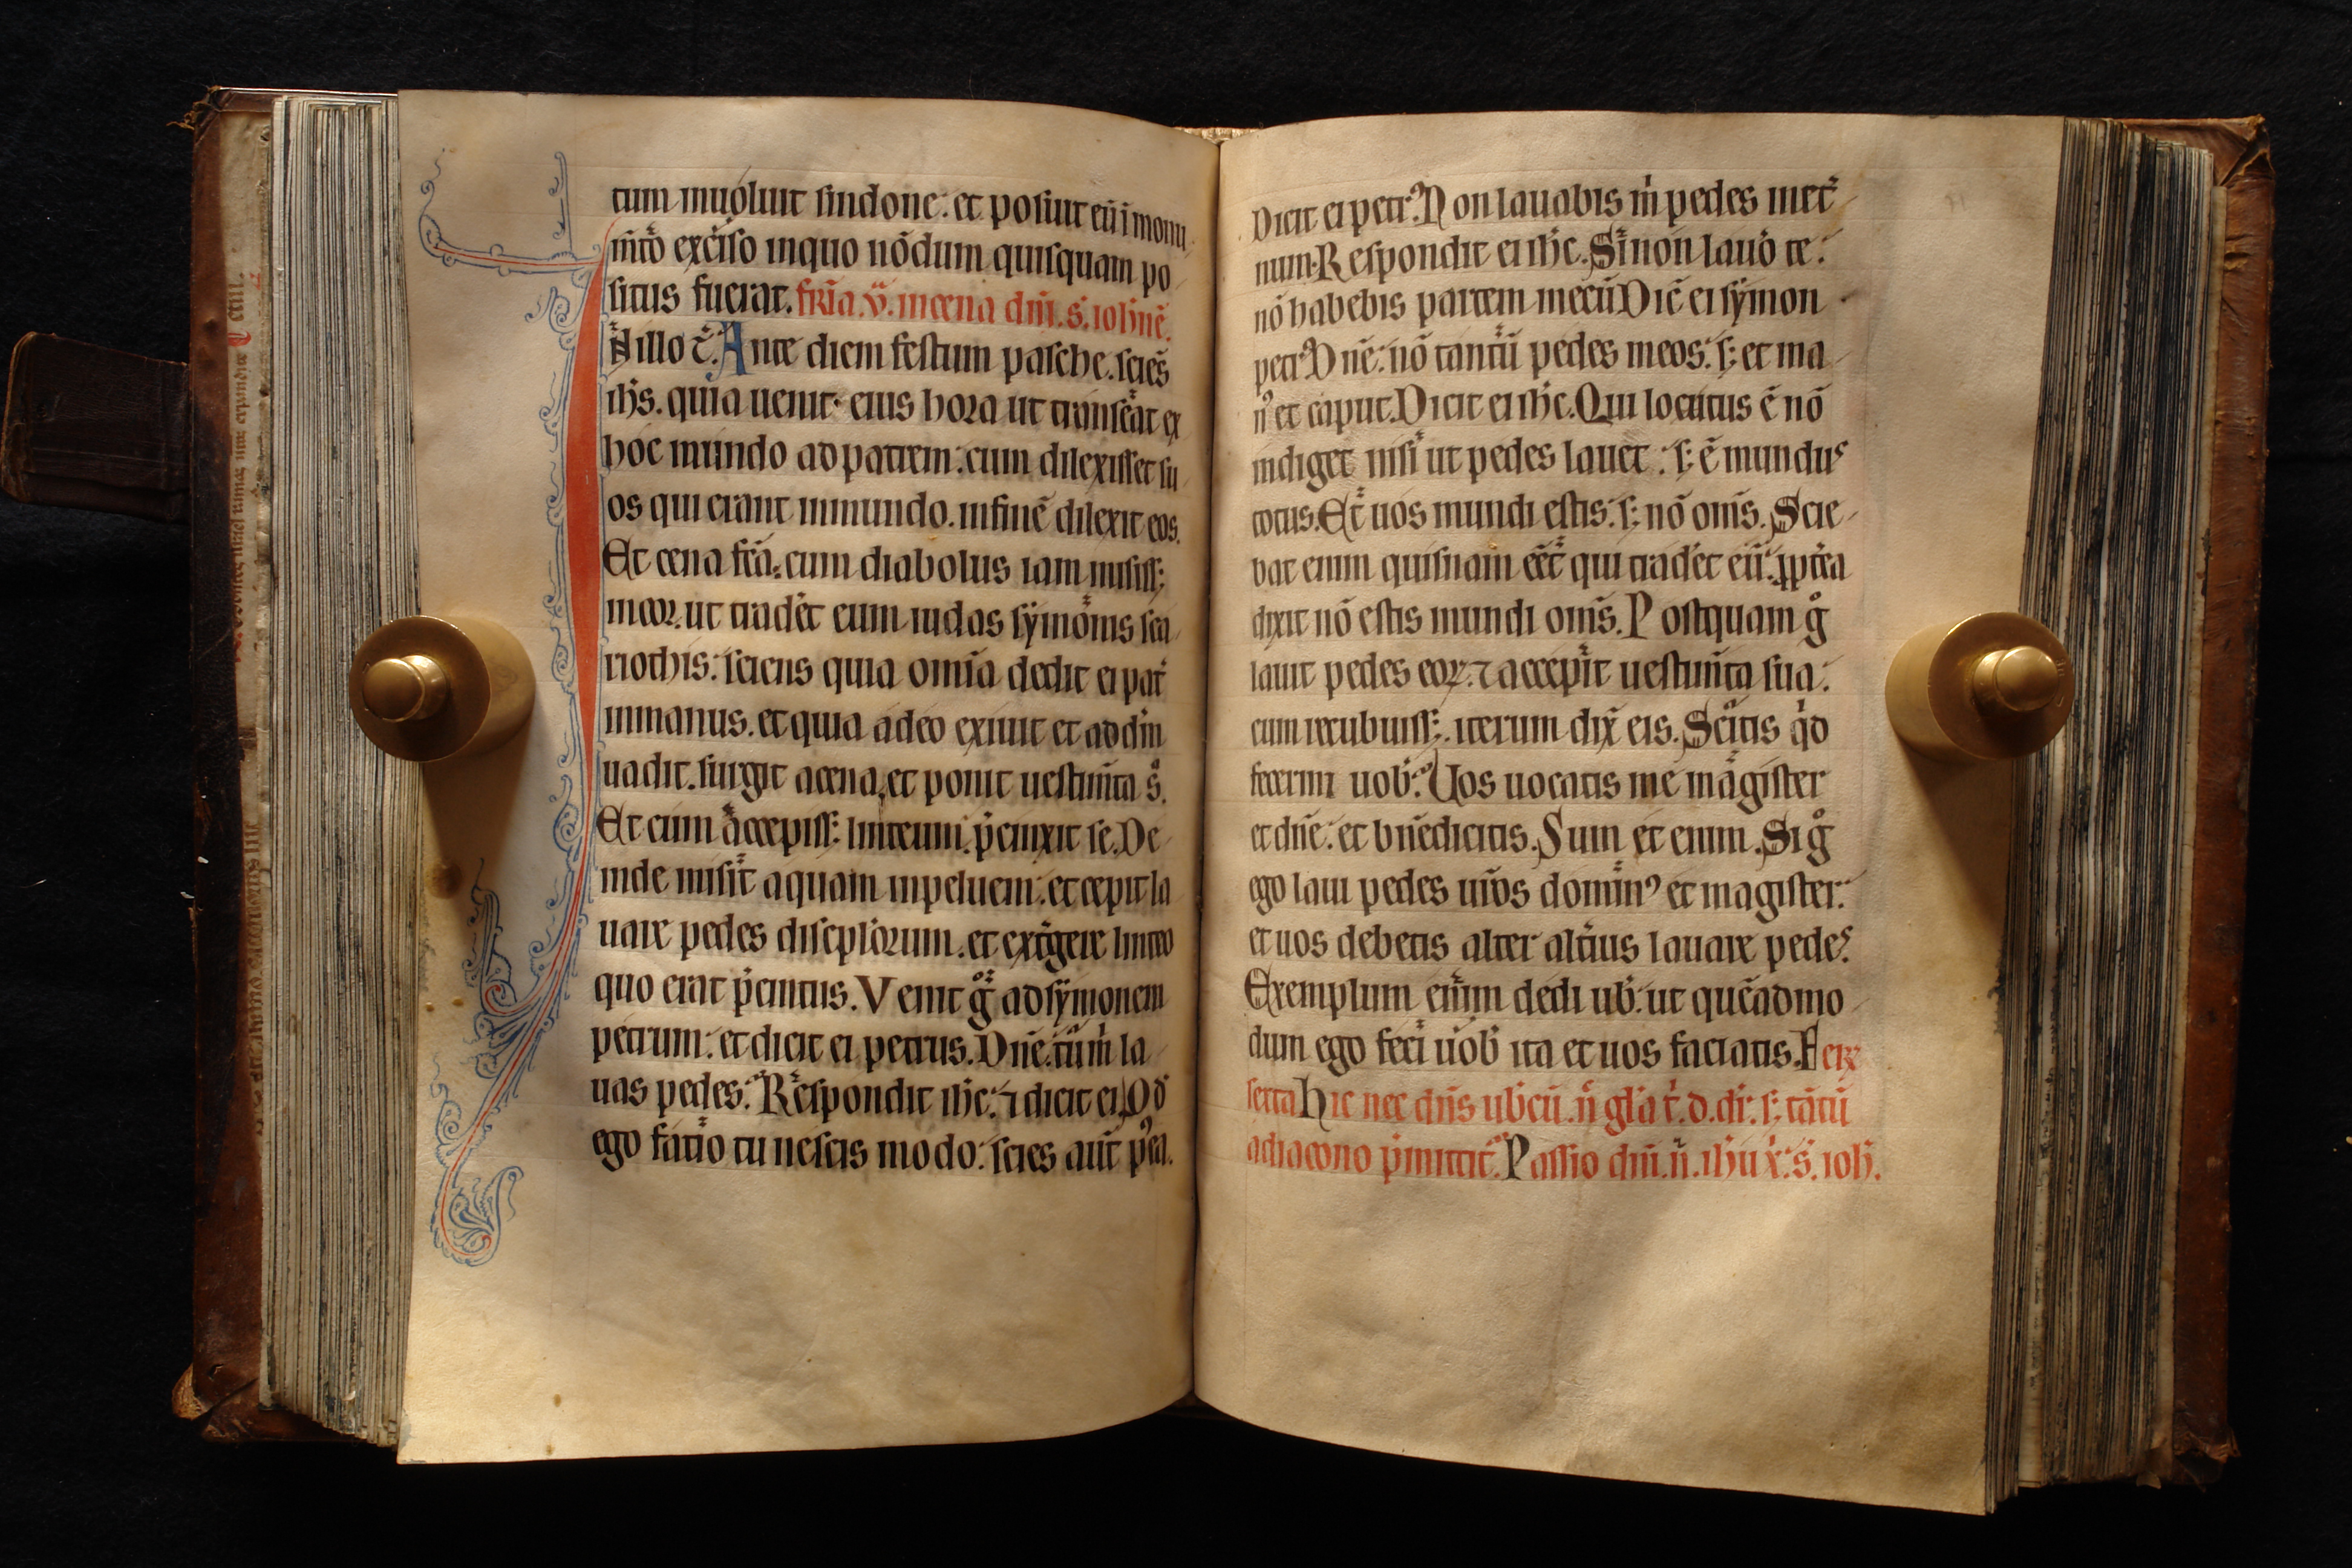 tum inuoluit sindone: et posiuit eū ī monu
m̄to exciso inquo nōdum quisquam po
situs fuerat. fr̄ia. v̄. incena dn̄i. s̄. ioh̄nē.
N illo t̄. Ante diem festum pasche. scies̄
ih̄s. quia uenit eius hora ut transeāt ex
hoc mundo ad patrem: cum dilexisset su
os qui erant inmundo. infinē dilexit eos.
Et cena fc̄a. cum diabolus iam misiss;
incor. ut trad̄et eum iudas sẏmonis sca
riothis: sciens quia omīa dedit ei pat̄
inmanus. et quia adeo exiuit et ad dm̄
uadit. surgit acena. et ponit uestim̄ta s̊.
Et cum accepiss; linteum. p̄cinxit se. De
inde misit aquam inpeluem: et cepit la
uare pedes discipl̄orum. et ext̄gere linteo
quo erat p̄cintus. Venit g̊ ad sẏmonem
petrum: et dicit ei petrus. Dn̄e. tu m̄ la
uas pedes: Respondit ih̄c: ⁊ dicit ei. Qd̄
ego fatio tu nescis modo: scies aūt p̄ea.
Dicit ei petr᷒. Non lauabis m̄ pedes inet̄
num. Respondit ei ih̄c. Si non lauō te:
nō habebis partem mecū Dic̄ ei sẏmon
petr᷒ Dn̄e: nō tantū pedes meos: s; et ma
n᷒ et caput. Dicit ei ih̄c. Qui locutus ē nō
indiget nisi ut pedes lauet: s; ē mundus
totus. Et uos mundi estis: s; nō om̄s. Scie
bat enim quisnam eēt qui trad̄et eū: ꝓpt̄ea
dixit nō estis mundi om̄s. Postquam g̊
lauit pedes eoꝝ: ⁊ accepit uestim̄ta sua:
cum recubuiss; iterum dix̄ eis. Scitis qd̄
fecerim uob̄: Uos uocatis me magister
et dn̄e: et bn̄edicitis. Sum et enim. Si g̊
ego laui pedes ur̄os domin᷒ et magister:
et uos debetis alter alt̄ius lauare pedes.
Exemplum enim dedi ub̄: ut quēadmo
dum ego feci uob̄ ita et uos faciatis. Fer̄
sexta Hic nec dn̄s ub̄cū. n̄ gl̄a t̄. d. dr̄. s; tātū
adiacono p̄mittit̄. Passio dn̄i. n̄. ih̄u x̄. s̄. ioh̄.